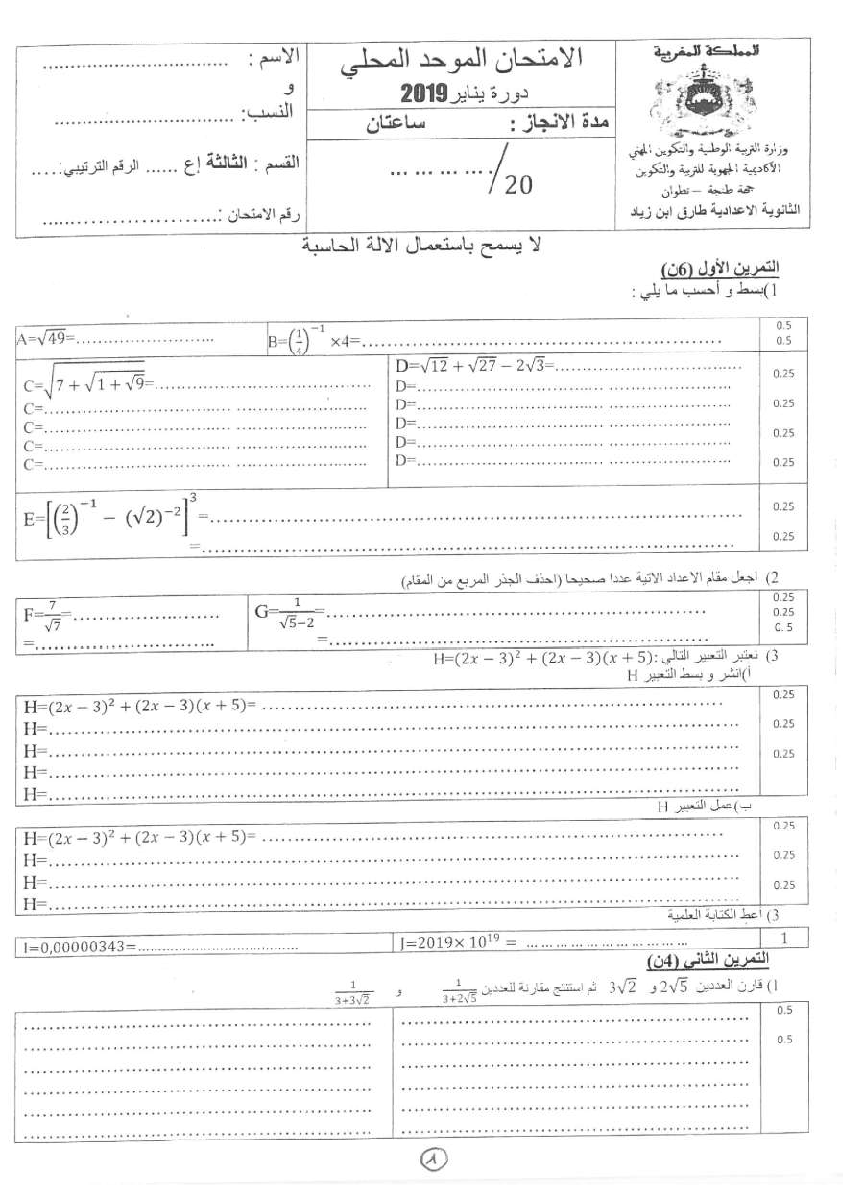 المملكة المغربية
وزارة التربية الوطنية والتكوين المهني
الأكاديمية الجهوية للتربية والتكوين
جهة طنجة – تطوان
الثانوية الاعدادية طارق ابن زياد
الامتحان الموحد المحلي
دورة يناير 2019
مدة الانجاز : ساعتان
... ... ... .../20
الاسم : ..................................
و
النسب: ..................................
القسم : الثالثة إع ...... الرقم الترتيبي:.....
رقم الامتحان :..............................
لا يسمح باستعمال الالة الحاسبة
التمرين الأول (6ن)
1)بسط و أحسب ما يلي :
A=√49=..........................
B=(1/4)^{-1} ×4=..........................
0.5
0.5
C=√(7 + √(1 + √9))=..........................
C=..........................
C=..........................
C=..........................
C=..........................
D=√12 + √27 − 2√3=..........................
D=..........................
D=..........................
D=..........................
D=..........................
D=..........................
0.25
0.25
0.25
0.25
E=[(2/3)^{-1} − (√2)^{-2}]^3=..........................
=..........................
0.25
0.25
2) اجعل مقام الاعداد الاتية عددا صحيحا (احذف الجذر المربع من المقام)
F=7/√7=..........................
=..........................
G=1/(√5−2)=..........................
=..........................
0.25
0.25
0.5
3) نعتبر التعبير التالي :H=(2x − 3)² + (2x − 3)(x + 5)
أ)انشر و بسط التعبير H
H=(2x − 3)² + (2x − 3)(x + 5)= ..........................
H=..........................
H=..........................
H=..........................
H=..........................
0.25
0.25
0.25
ب)عمل التعبير H
H=(2x − 3)² + (2x − 3)(x + 5)= ..........................
H=..........................
H=..........................
H=..........................
0.25
0.25
0.25
3) اعط الكتابة العلمية
I=0,00000343=..........................
J=2019× 10^{19} = ..........................
1
التمرين الثاني (4ن)
1) قارن العددين 2√5 و 3√2 ثم استنتج مقارنة للعددين 1/(3+2√5) و 1/(3+3√2)
0.5
0.5
1